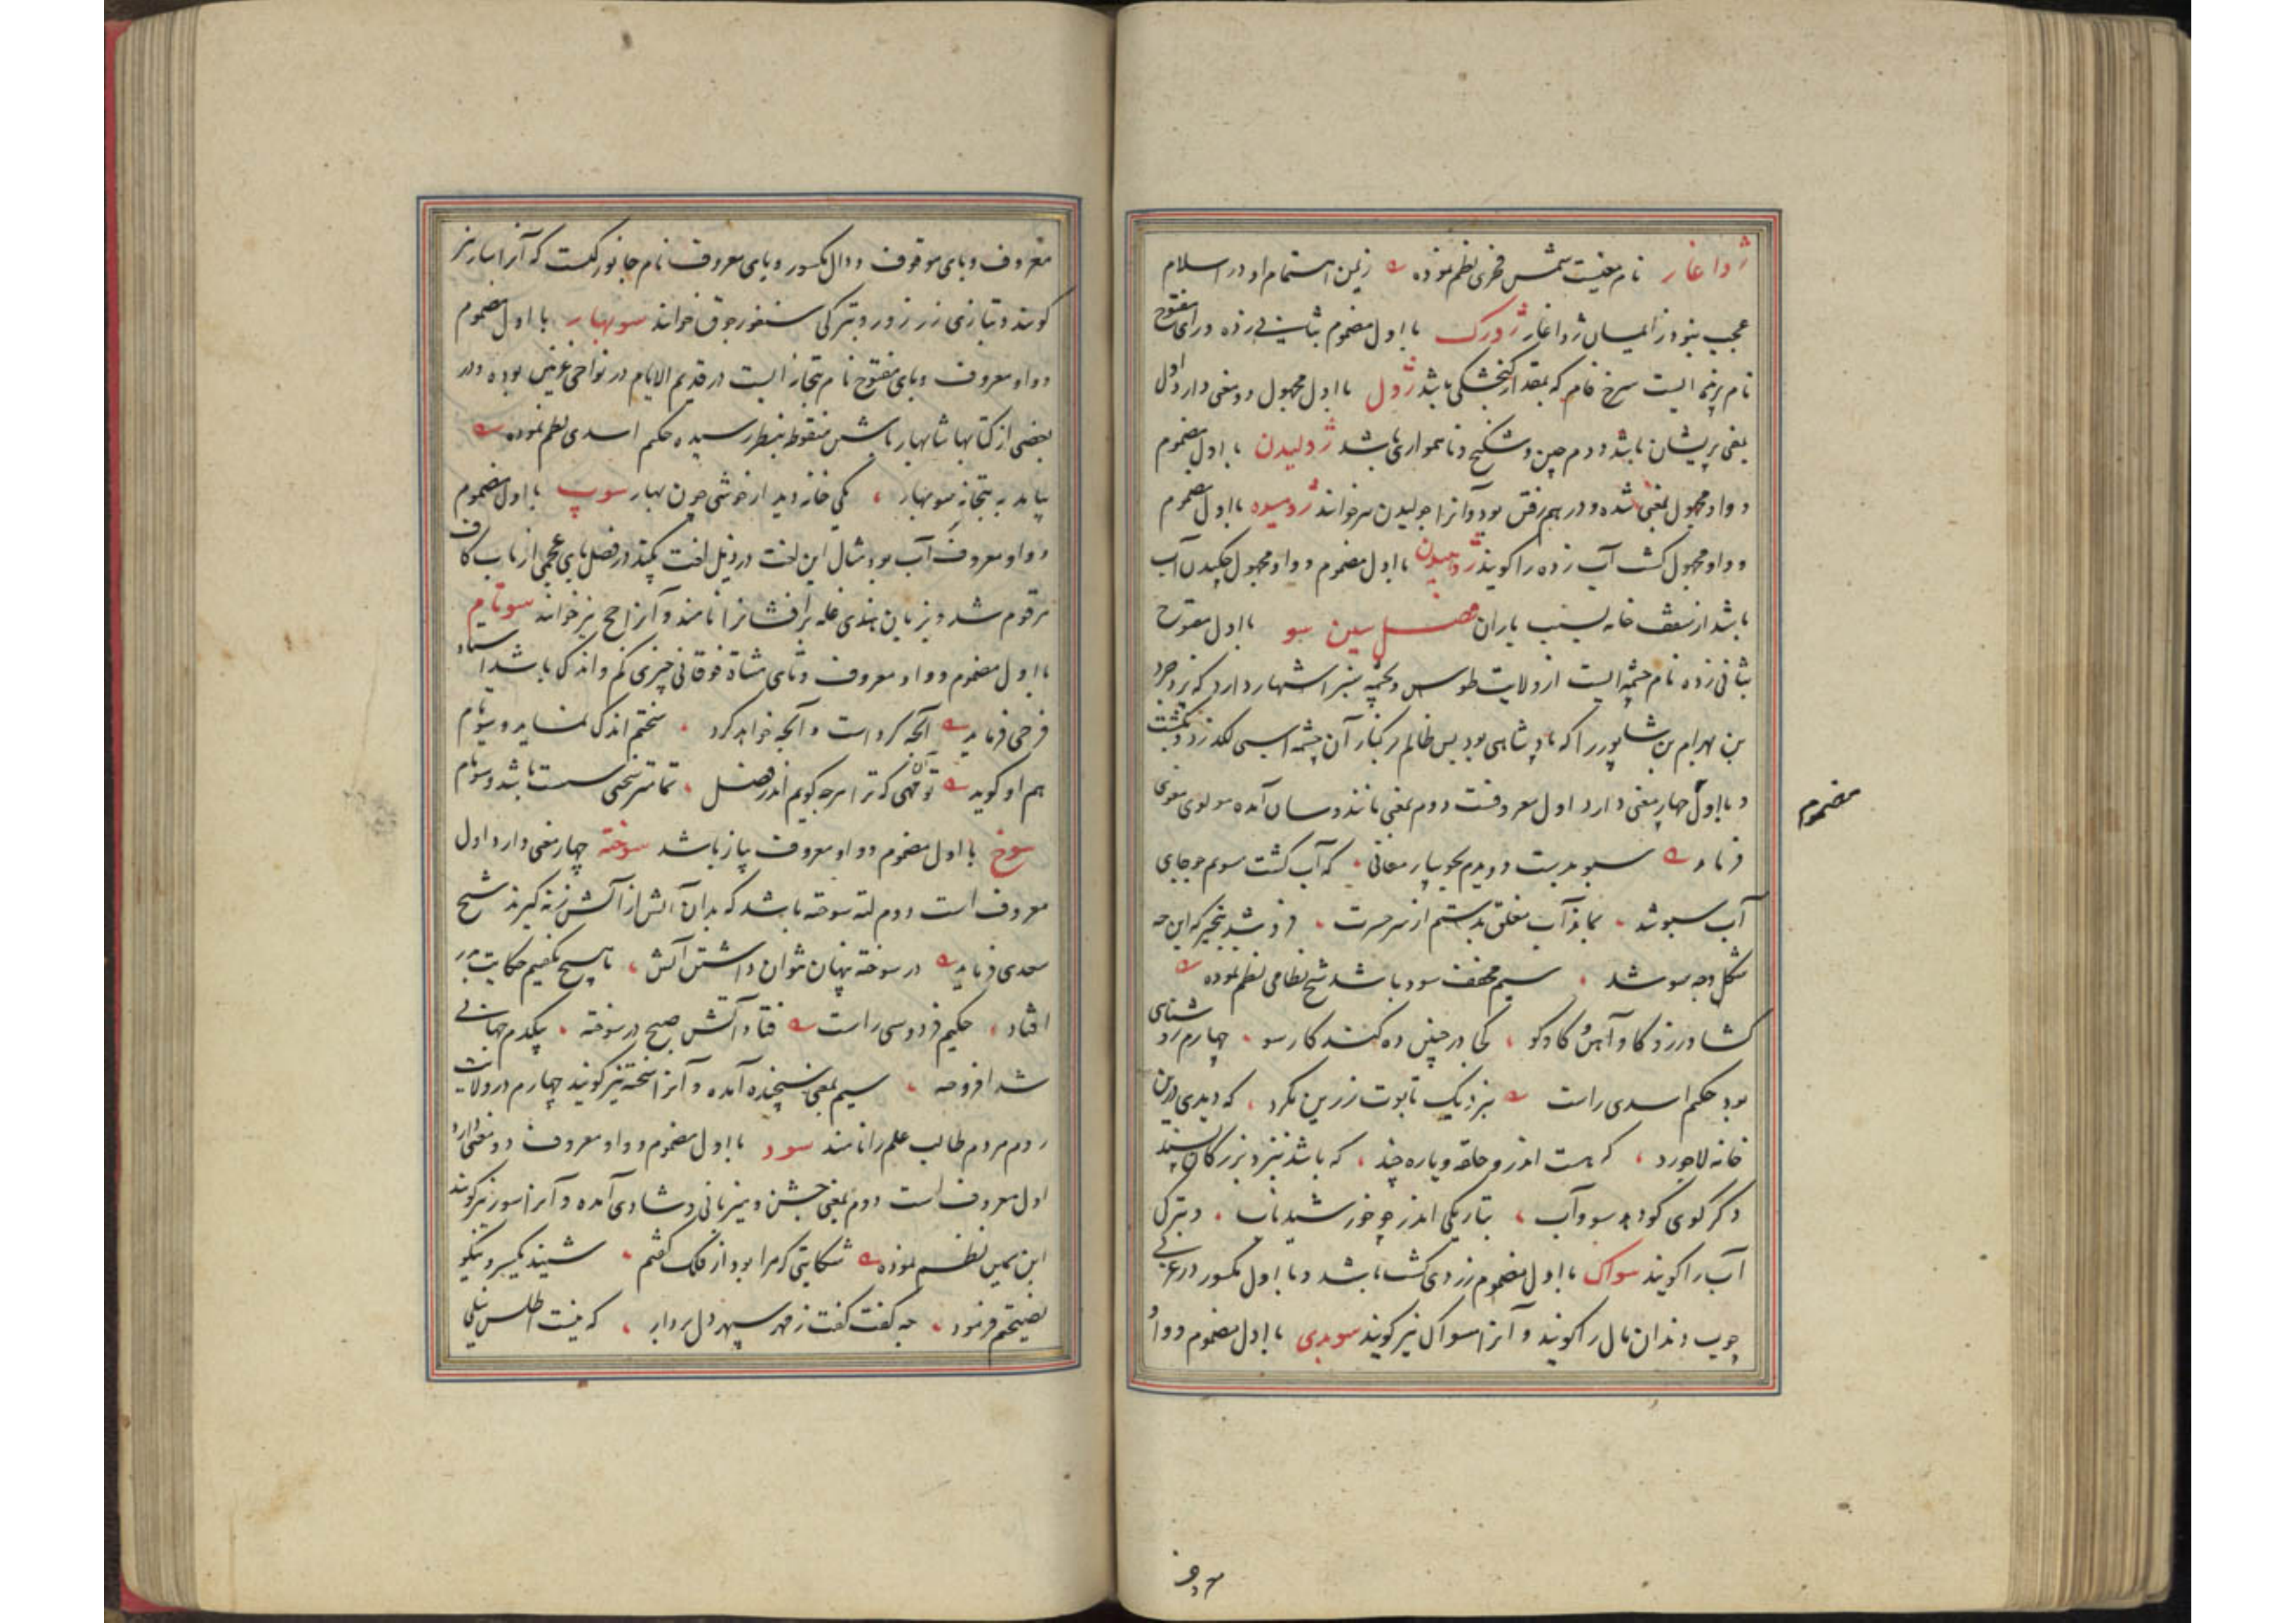 ژواغار نام مغیست شمس فخری نظم نموده زیمن اهتمام او در اسلام
عجب نبود ز ایمان ژواغار ژورک با اول مضموم بثانی زده و رای مفتوح
نام پرنده ایست سرخ فام که بمقدار گنجشکی باشد ژول با اول مجهول دو معنی دارد اول
بمعنی پریشان باشد دوم چین و شکنج و ناهمواری باشد ژولیدن با اول مضموم
و واو مجهول بمعنی شده و درهم رفتن بود و آنرا جولیدن نیز خوانند ژومیده با اول مضموم
و واو مجهول کشت آب زده را گویند ژومیدن با اول مضموم و واو مجهول چکیدن آب
باشد از سقف خانه بسبب باران فصل سین سو با اول مفتوح
بثانی زده نام چشمه ایست از ولایت طوس و بچشمه سبز اشتهار دارد که یزدجرد
بن بهرام بن شاپور را که پادشاهی بود بس ظالم بر کنار آن چشمه اسبی لکد زد و بکشت
و با اول چهار معنی دارد اول معروفست دوم بمعنی مانند و سان آمده مولوی معنوی
مضموم
فرماید سبو بدست دویدم بجویبار معانی که آب گشت سویم چو جای
آب سبو شد نماز آب معلق بدستم از سر حسرت فرو شد بتحیر که این چه
شکل و چه سو شد سیم مخفف سود باشد شیخ نظامی نظم نموده
کشاورز و گاو آهن گاو کو کجا در چنین ده کنند کار سو چهارم روشنای
بود حکیم اسدی راست بنزدیک تابوت زرین نگرد که دیدی درین
خانه لاجورد که هست اندرو حلقه و یاره چند که باشد بنزد بزرگان پسند
دگر گوی گود بد سو و آب بتاریکی اندر چو خورشید تاب و بترکی
آب را گویند سواک با اول مضموم زردی کشت باشد و با اول مکسور در عربی
چوب دندان مال را گویند و آنرا مسواک نیز گویند سوبدی با اول مضموم و واو
معروف و بای موقوف و دال مکسور و یای معروف نام جانورکیست که آنرا سار نیز
گویند و بتازی زرزور و بترکی سغورجوق خوانند سوبهار با اول مضموم
و واو معروف و بای مفتوح نام بتخانه ایست در قدیم الایام در نواحی غزنین بوده و در
بعضی از کتابها شابهار باشین منقوط بنظر رسیده حکیم اسدی نظم نموده
بیامد به بتخانه سوبهار یکی خانه دید از خوشی چون بهار سوپ با اول مضموم
و واو معروف آب بود مثال این لغت در ذیل لغت پکند در فصل بای عجمی از باب کاف
مرقوم شد و بزبان هندی غله برافشانرا نامند و آنرا چج نیز خوانند سوتام
با اول مضموم و واو معروف و تای مثناة فوقانی چیزی کم و اندک باشد استاد
فرخی فرماید آنچه کرد است و آنچه خواهد کرد سختم اندک نماید و سوتام
هم او گوید تو آن مهی که ترا هر چه گویم اندر فضل تمامتر سخنی سست باشد و سوتام
سوخ با اول مضموم و واو معروف پیاز باشد سوخته چهار معنی دارد اول
معروف است دوم لته سوخته باشد که بدان آتش از آتش زنه گیرند شیخ
سعدی فرماید در سوخته پنهان نتوان داشتن آتش ما هیچ نگفتیم حکایت بدر
افتاد حکیم فردوسی راست فتاد آتش صبح در سوخته بیکدم جهانی
شد افروخته سیم بمعنی سنجیده آمده و آنرا سخته نیز گویند چهارم در ولایت
روم مردم طالب علم را نامند سور با اول مضموم و واو معروف دو معنی دارد
اول معروف است دوم بمعنی جشن و میزبانی و شادی آمده و آنرا سور نیز گویند
ابن یمین نظم نموده شکایتی که مرا بود از فلک گفتم شنید یکسر و نیکو
نصیحتم فرمود چه گفت گفت ز مهر سپهر دل بردار که نیست اطلس نیلی